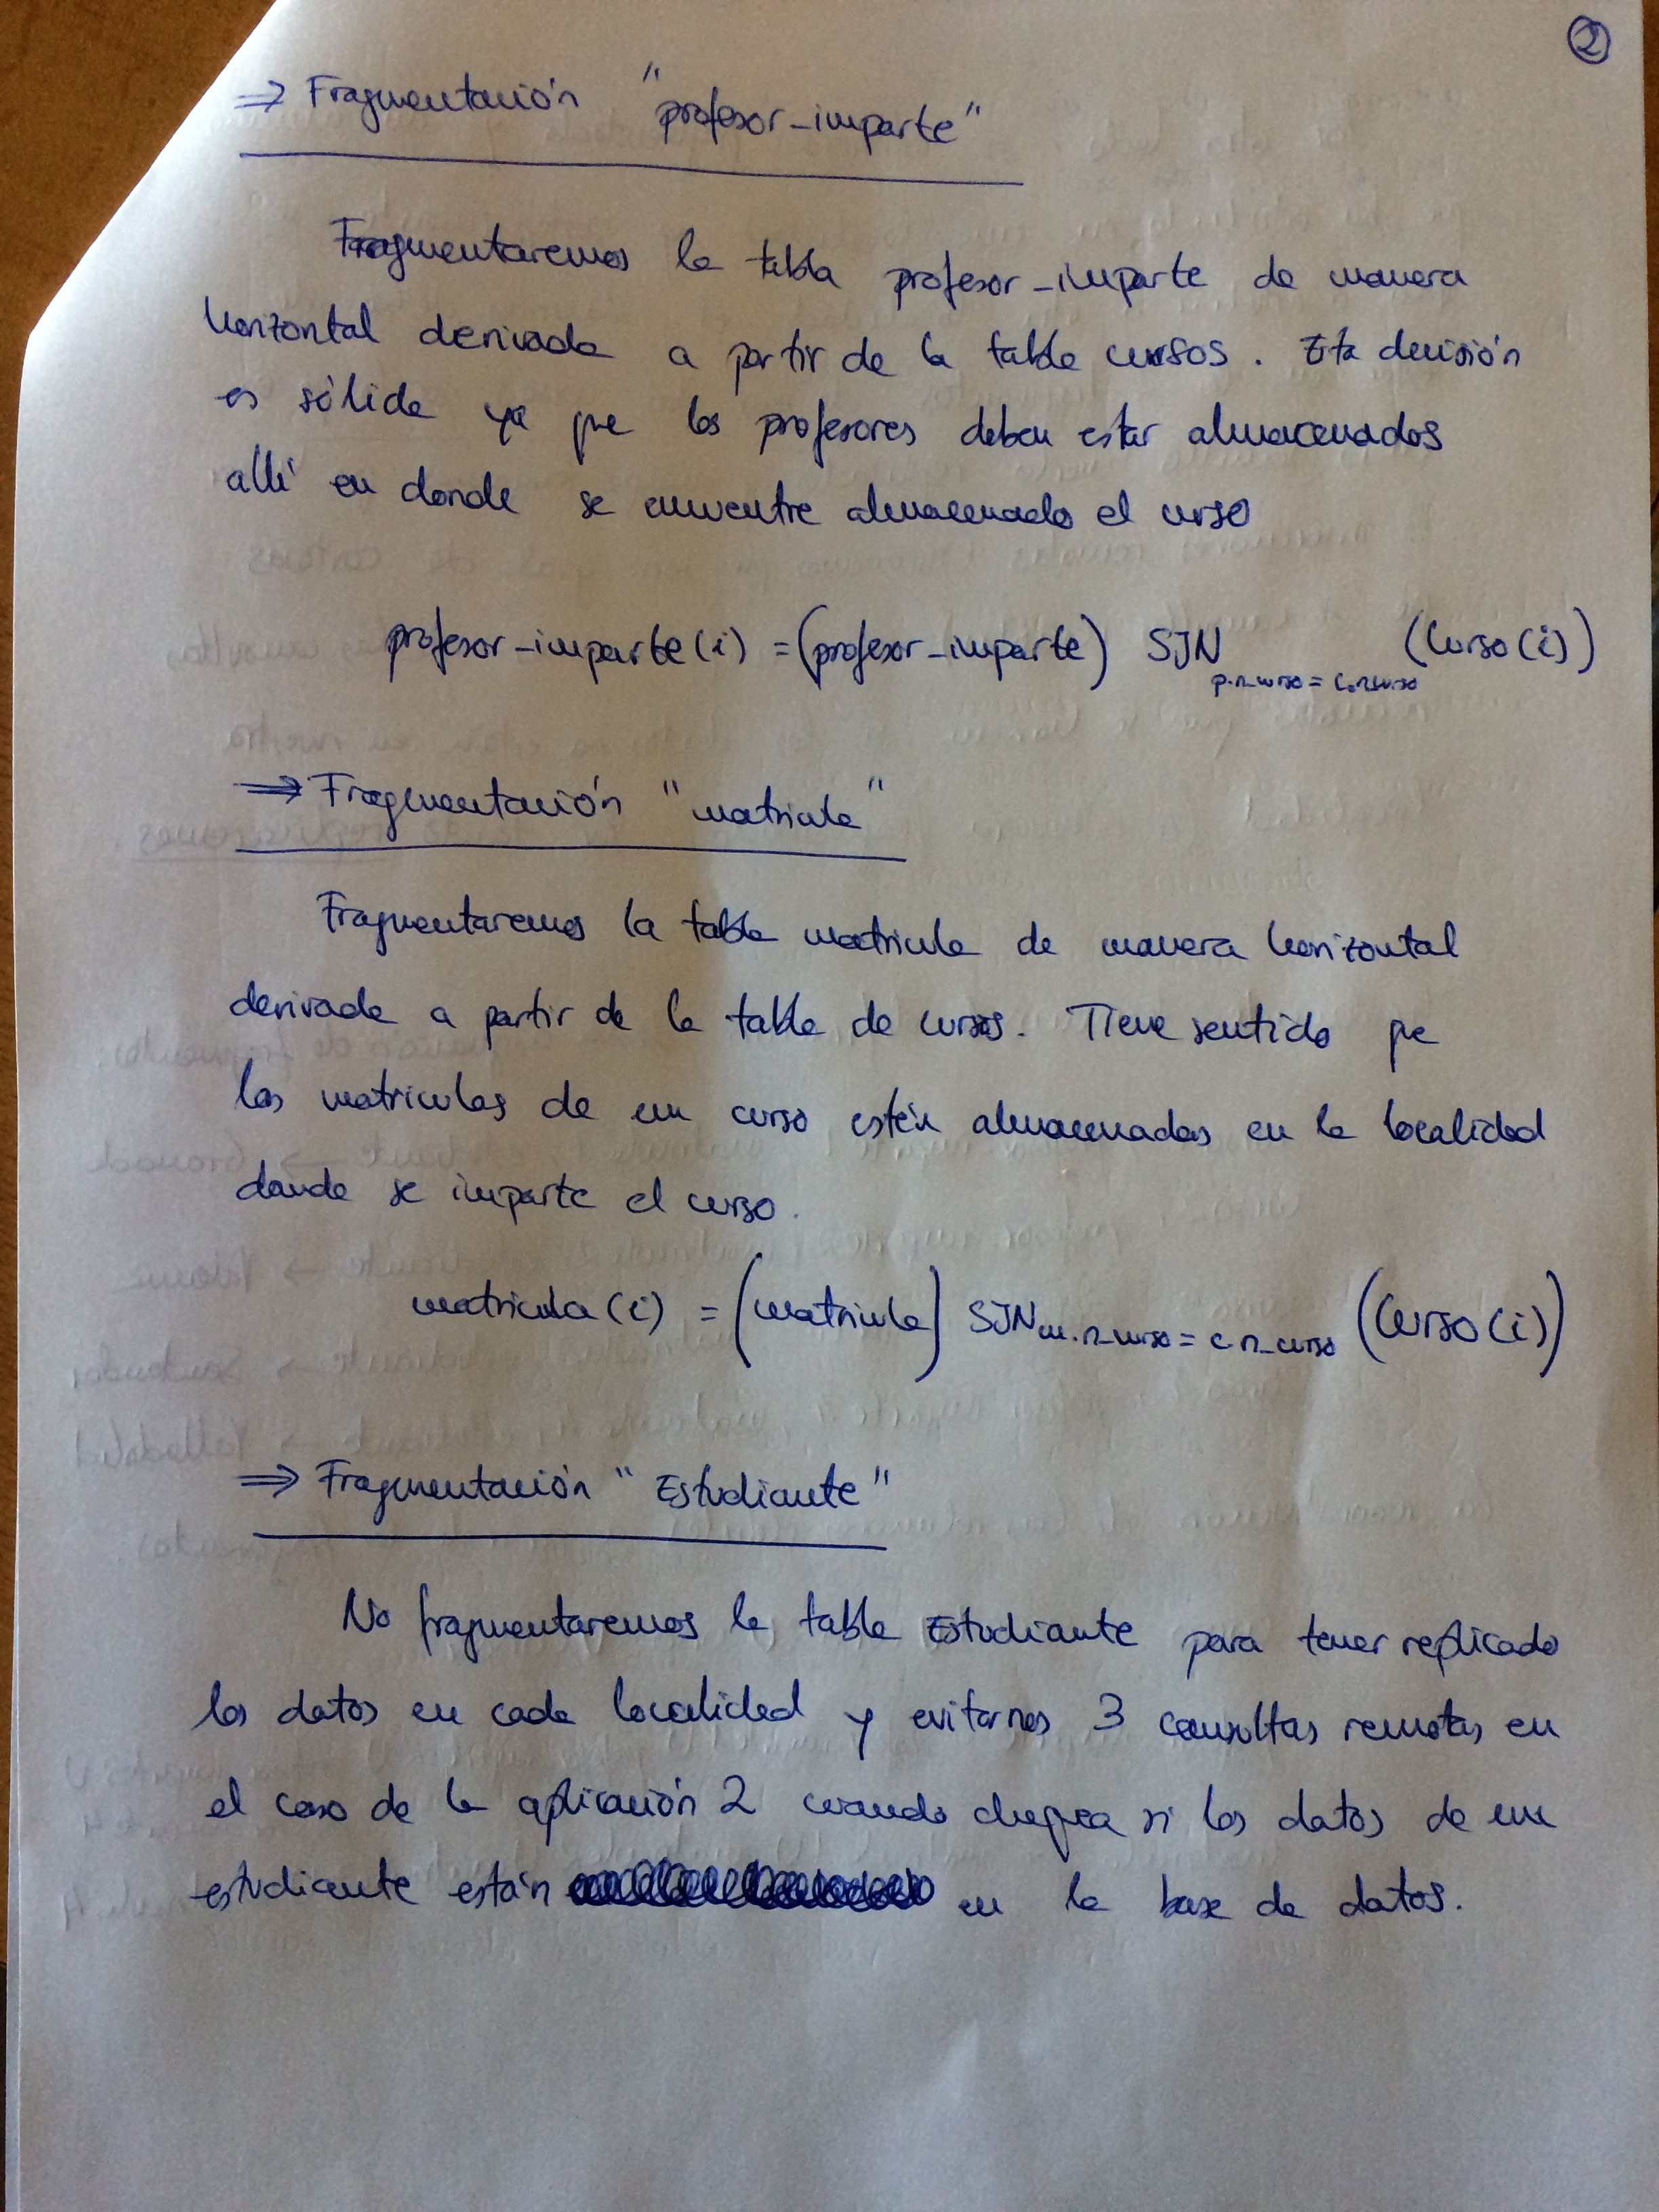 2
⇒ Fragmentación "profesor_imparte"
Fragmentaremos la tabla profesor_imparte de manera
horizontal derivada a partir de la tabla cursos. Esta decisión
es sólida ya que los profesores deben estar almacenados
allí en donde se encuentre almacenado el curso
profesor_imparte(i) = (profesor_imparte) SJN p.n_curso = c.n_curso (Curso(i))
⇒ Fragmentación "matricula"
Fragmentaremos la tabla matricula de manera horizontal
derivada a partir de la tabla de cursos. Tiene sentido que
las matriculas de un curso estén almacenadas en la localidad
donde se imparte el curso.
matricula(i) = (matricula) SJN m.n_curso = c.n_curso (Curso(i))
⇒ Fragmentación "Estudiante"
No fragmentaremos la tabla Estudiante para tener replicado
los datos en cada localidad y evitarnos 3 consultas remotas en
el caso de la aplicación 2 cuando chequea si los datos de un
estudiante están en la base de datos.